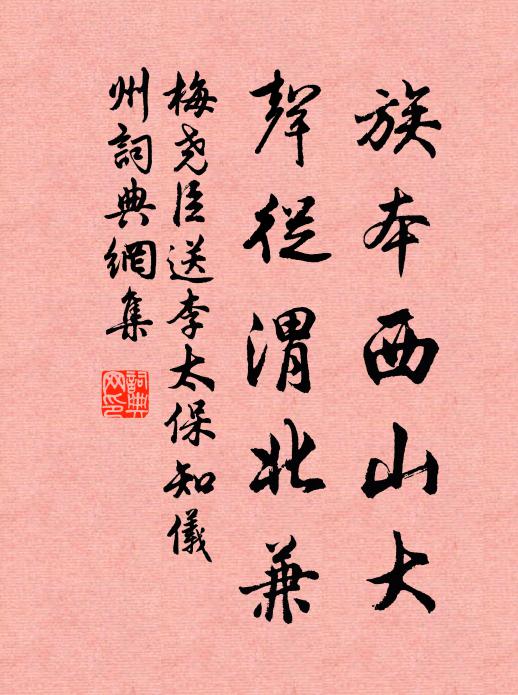 族本西山大
聲從渭北兼
梅尧臣送李太保知儀
州詞典網集
詞典
网印